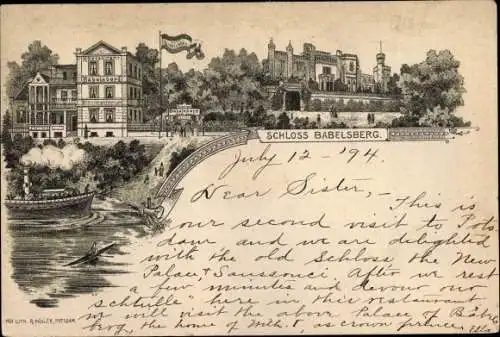 SCHLOSS BABELSBERG.
July 12 - '94.
Dear Sister, - This is
our second visit to Pots
dam and we are delighted
with the old Schloss the New
Palace, & Sanssouci. After we rest
a few minutes and devour our
"schtulle" here in this restaurant
we will visit the above Palace of Babels
berg, the home of Wilh. I, as crown prince.